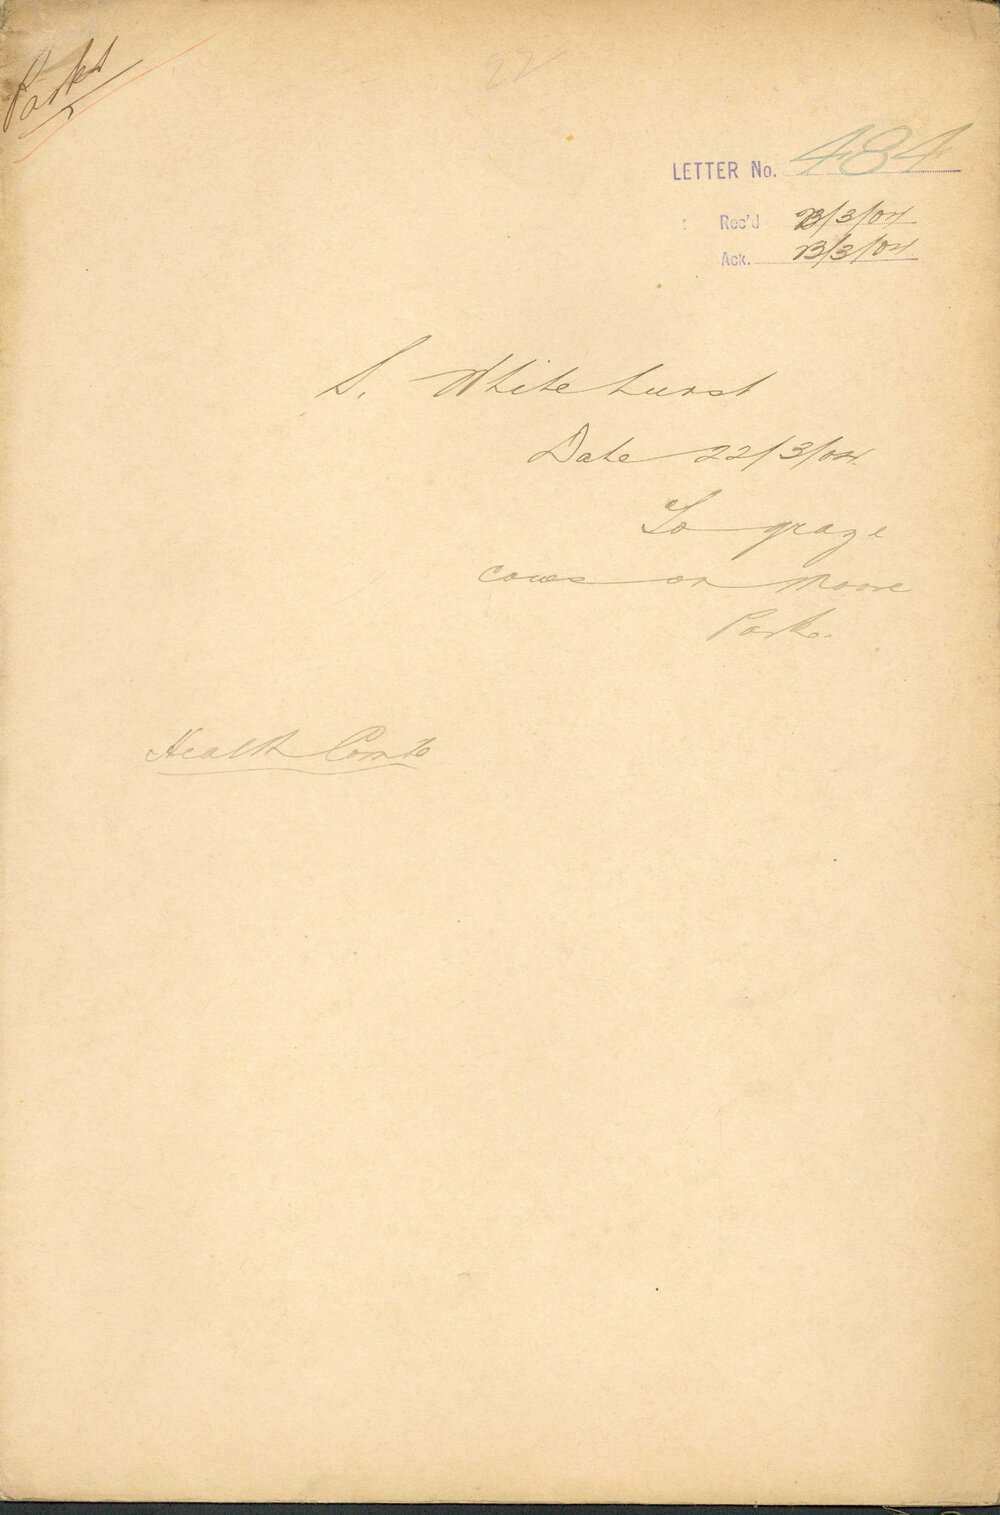 Parks
92
LETTER No. 484
Rec'd 23/3/04
Ack. 23/3/04
S. Whitehurst
Date 22/3/04.
To graze
cows on Moore
Park.
Health Comte